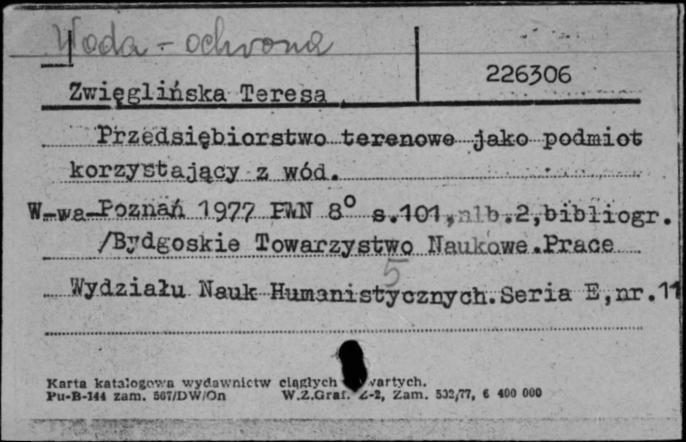 Woda - ochrona
226306
Zwięglińska Teresa
Przedsiębiorstwo terenowe jako podmiot
korzystający z wód.
W-wa-Poznań 1977 PWN 8° s.101,nlb.2,bibliogr.
/Bydgoskie Towarzystwo Naukowe.Prace
5
Wydziału Nauk Humanistycznych.Seria E,nr.11
Karta katalogowa wydawnictw ciągłych wartych.
Pu-B-144 zam. 567/DW/On W.Z.Graf. Z-2, Zam. 532/77, 6 400 000